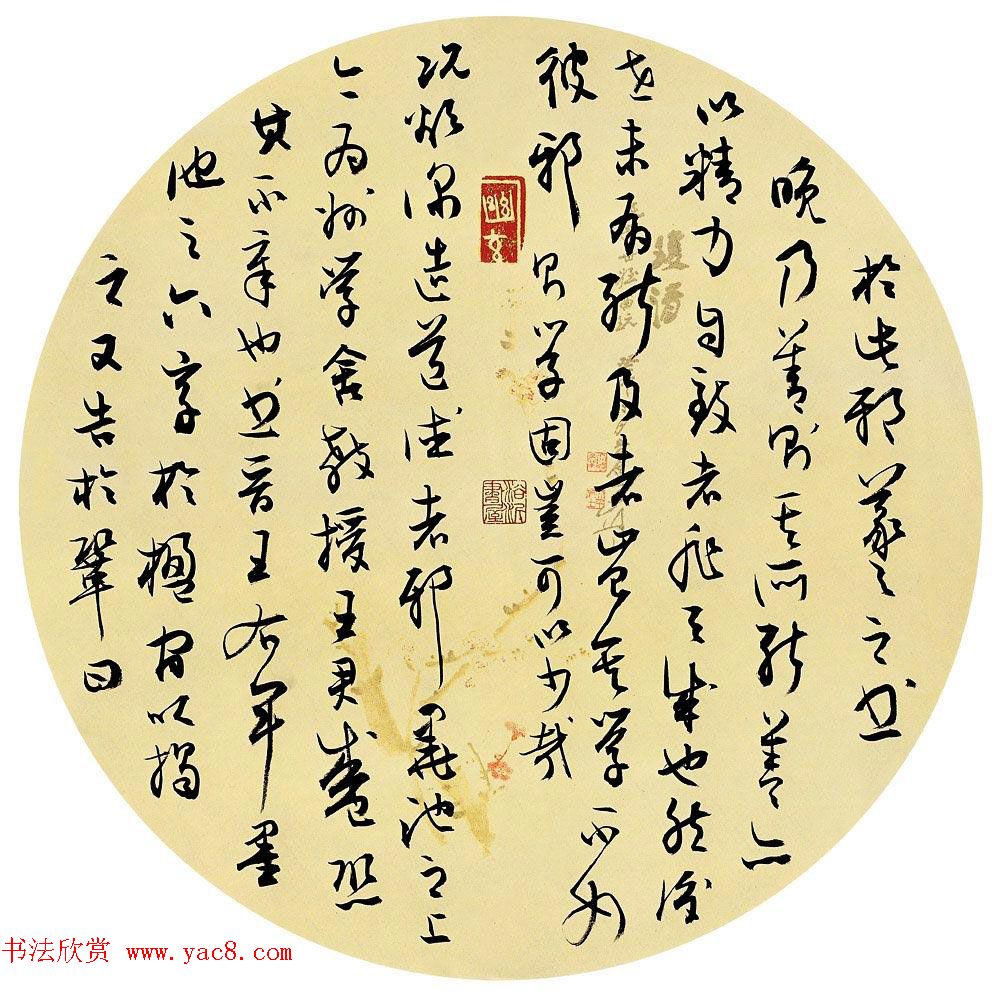 於此邪羲之之書
晚乃善則其所能蓋亦
以精力自致者非天成也然後
世未有能及者豈其學不如
彼邪則學固豈可以少哉
況欲深造道德者邪墨池之上
今為州學舍教授王君盛恐
其不章也書晉王右軍墨
池之六字於楹間以揭
之又告於鞏曰
幽玄
书法欣赏 www.yac8.com